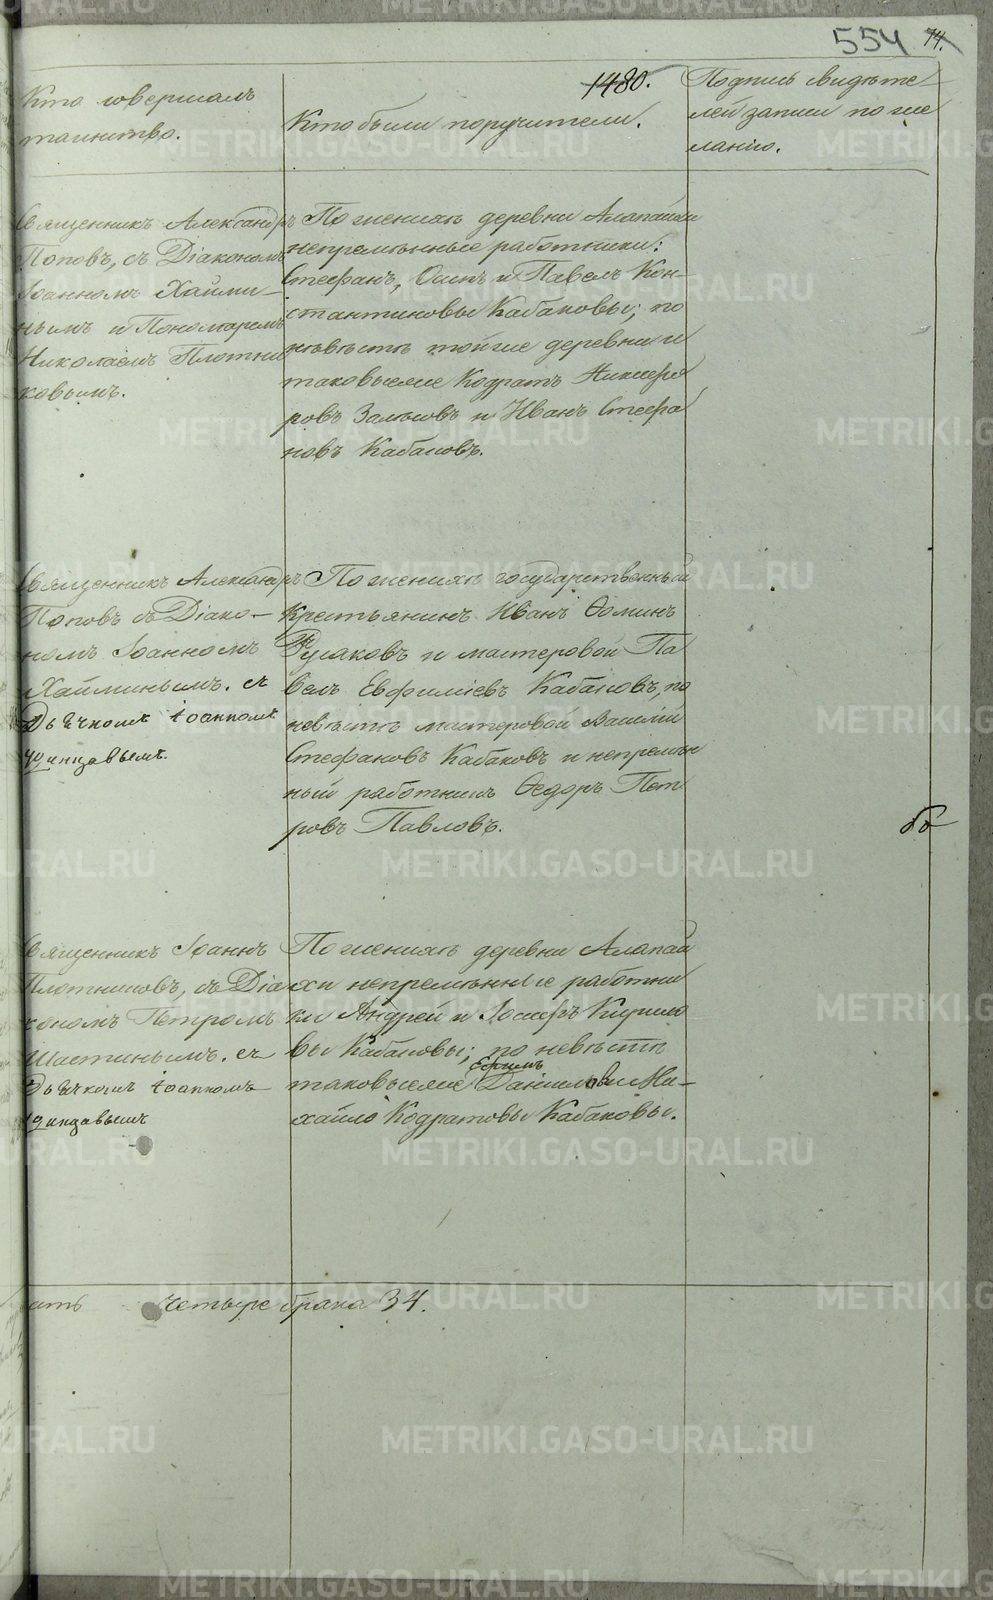 554 74.
1480.
Кто совершалъ
таинство.
Кто были поручители.
Подпись свидѣте
лей записи по же
ланію.
Священникъ Александръ
Поповъ, съ Діакономъ
Іоанномъ Хайми-
нымъ и Пономаремъ
Николаемъ Плотни
ковымъ.
По женихѣ деревни Алапаихи
непремѣнные работники:
Стефанъ, Осипъ и Павелъ Кон-
стантиновы Кабаковы; по
невѣстѣ тойже деревни и
таковыеже Кодратъ Никифо
ровъ и Иванъ Стефа
новъ Кабаковъ.
Священникъ Александръ
Поповъ съ Діако-
номъ Іоанномъ
Хайминымъ. съ
Дьячкомъ Іоанномъ
По женихѣ государственный
Крестьянинъ Иванъ Ѳоминъ
Русаковъ и мастеровой Па
велъ Евфиміевъ Кабаковъ, по
невѣстѣ мастеровой Василій
Стефановъ Кабаковъ и непремѣн
ный работникъ Ѳедоръ Пет
ровъ Павловъ.
Священникъ Іоаннъ
Плотниковъ, съ Діа
кономъ Петромъ
Шастинымъ. съ
Дьячкомъ Іоанномъ
По женихѣ деревни Алапаи
хи непремѣнные работни
ки Андрей и Іосифъ Кирило
вы Кабаковы; по невѣстѣ
Ефимъ
таковыеже Даниловъ и Ми-
хайло Кодратовы Кабаковы.
четыре брака 34.
METRIKI.GASO-URAL.RU